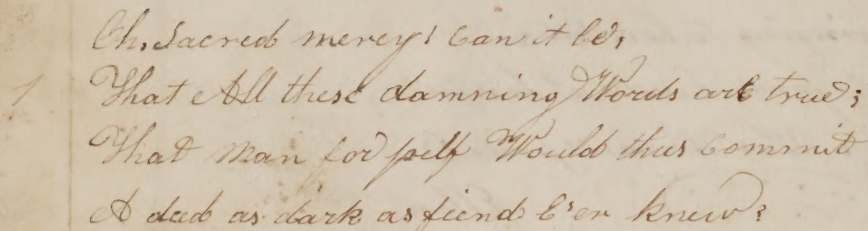 Oh, Sacred mercy! Can it be,
That All these damning Words are true;
That Man for pelf Would thus Commit
A deed as dark as fiend E'er knew?